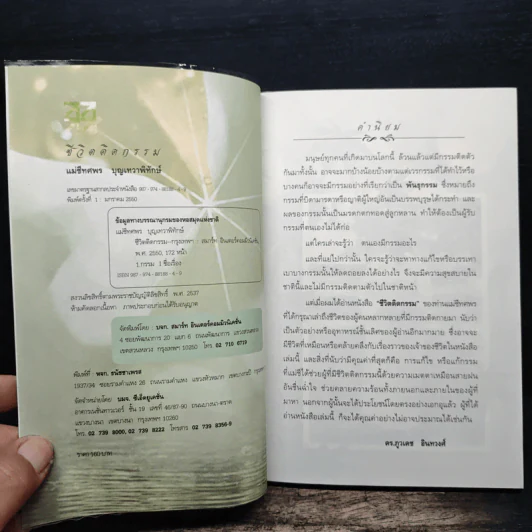 ชีวิตติดกรรม
แม่ชีทศพร บุญเทวาพิทักษ์
เลขมาตรฐานสากลประจำหนังสือ 967 - 974 -
พิมพ์ครั้งที่ 1 มกราคม 2550
ข้อมูลทางบรรณานุกรมของหอสมุดแห่งชาติ
แม่ชีทศพร บุญเทวาพิทักษ์
ชีวิตติดกรรม--กรุงเทพฯ : สมาร์ท อินเตอร์คอมมิวนิเคชั่น,
พ.ศ. 2550, 172 หน้า
1.กรรม I ชื่อเรื่อง
สงวนลิขสิทธิ์ตามพระราชบัญญัติลิขสิทธิ์ พ.ศ. 2537
ห้ามคัดลอกเนื้อหา ภาพประกอบก่อนได้รับอนุญาต
จัดพิมพ์โดย : บจก. สมาร์ท อินเตอร์คอมมิวนิเคชั่น
4 ซอยพัฒนาการ 20 แยก 6 ถนนพัฒนาการ แขวงสวนหลวง
เขตสวนหลวง กรุงเทพฯ 10250 โทร. 02 710 0719
พิมพ์ที่ : หจก. ธนัชชาเพรส
1937/34 ซอยรามคำแหง 26 ถนนรามคำแหง แขวงหัวหมาก เขตบางกะปิ
จัดจำหน่ายโดย : บมจ. ซีเอ็ดยูเคชั่น
อาคารเนชั่นทาวเวอร์ ชั้น 19 เลขที่ 46/87-90 ถนนบางนา-ตราด
แขวงบางนา เขตบางนา กรุงเทพฯ 10260
โทร. 02 739 8000, 02 739 8222 โทรสาร 02 739 8356-9
ราคา 160 บาท
คำนิยม
มนุษย์ทุกคนที่เกิดมาบนโลกนี้ ล้วนแล้วแต่มีกรรมติดตัว
กันมาทั้งนั้น อาจจะมากบ้างน้อยบ้างตามแต่เวรกรรมที่ได้ทำไว้หรือ
บางคนก็อาจจะมีกรรมอย่างที่เรียกว่าเป็น พันธุกรรม ซึ่งหมายถึง
กรรมที่บิดามารดาหรือญาติผู้ใหญ่อันเป็นบรรพบุรุษได้กระทำ และ
ผลของกรรมนั้นเป็นมรดกตกทอดสู่ลูกหลาน ทำให้ต้องเป็นผู้รับ
กรรมที่ตนเองไม่ได้ก่อ
แต่ใครเล่าจะรู้ว่า ตนเองมีกรรมอะไร
และที่แย่ไปกว่านั้น ใครจะรู้จะหาทางแก้ไขหรือบรรเทา
เบาบางกรรมนั้นให้ลดถอยลงได้อย่างไร จึงจะมีความสุขสบายใน
ชาตินี้และไม่มีกรรมติดตามตัวไปในชาติหน้า
แต่เมื่อผมได้อ่านหนังสือ "ชีวิตติดกรรม" ของท่านแม่ชีทศพร
ที่ได้กรุณาเล่าถึงชีวิตของผู้คนหลากหลายที่มีกรรมติดกายมา นับว่า
เป็นตัวอย่างหรืออุทาหรณ์ชั้นเลิศของผู้อ่านอีกมากมาย ซึ่งอาจจะ
มีชีวิตที่เหมือนหรือคล้ายคลึงกับเรื่องราวของเจ้าของชีวิตในหนังสือ
เล่มนี้ และสิ่งที่นับว่ามีคุณค่าที่สุดก็คือ การแก้ไข หรือแก้กรรม
ที่แม่ชีได้ช่วยผู้ที่มีชีวิตติดกรรมนี้ด้วยความเมตตาเหมือนสายฝน
อันชื่นฉ่ำใจ ช่วยคลายความร้อนทั้งภายนอกและภายในของผู้ที่
มาหา นอกจากผู้นั้นจะได้ประโยชน์โดยตรงอย่างเอกอุแล้ว ผู้ที่ได้
อ่านหนังสือเล่มนี้ ก็จะได้คุณค่าอย่างไม่อาจประมาณได้เช่นกัน
ดร.ภูวเดช อินทวงศ์